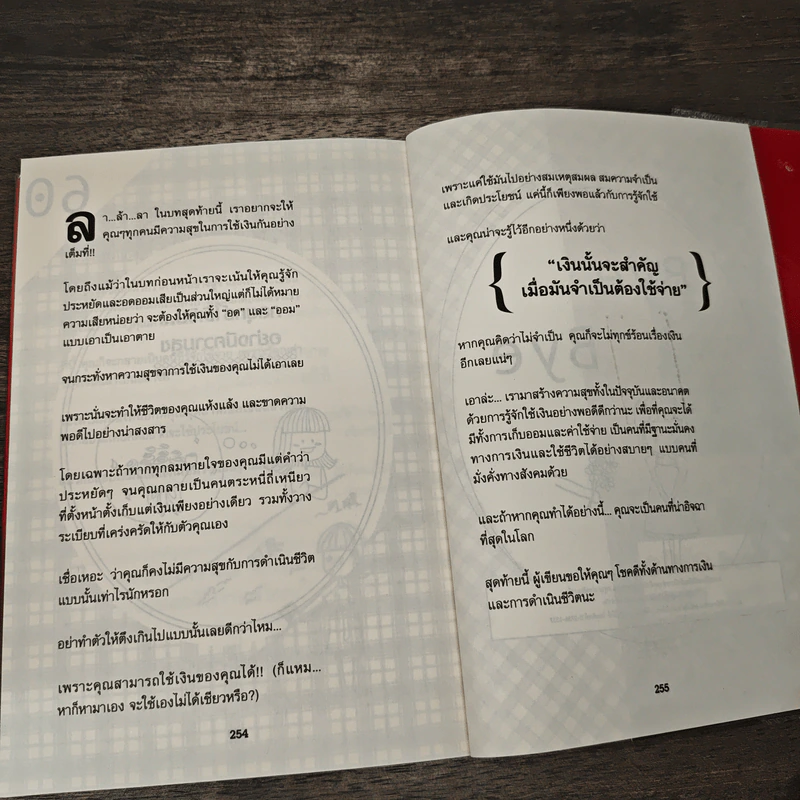 ลา...ล้า...ลา ในบทสุดท้ายนี้ เราอยากจะให้
คุณๆทุกคนมีความสุขในการใช้เงินกันอย่าง
เต็มที่!!
โดยถึงแม้ว่าในบทก่อนหน้าเราจะเน้นให้คุณรู้จัก
ประหยัดและอดออมเสียเป็นส่วนใหญ่แต่ก็ไม่ได้หมาย
ความเสียหน่อยว่า จะต้องให้คุณทั้ง “อด” และ “ออม”
แบบเอาเป็นเอาตาย
จนกระทั่งหาความสุขจาการใช้เงินของคุณไม่ได้เอาเลย
เพราะนั่นจะทำให้ชีวิตของคุณแห้งแล้ง และขาดความ
พอดีไปอย่างน่าสงสาร
โดยเฉพาะถ้าหากทุกลมหายใจของคุณมีแต่คำว่า
ประหยัดๆ จนคุณกลายเป็นคนตระหนี่ถี่เหนียว
ที่ตั้งหน้าตั้งเก็บแต่เงินเพียงอย่างเดียว รวมทั้งวาง
ระเบียบที่เคร่งครัดให้กับตัวคุณเอง
เชื่อเหอะ ว่าคุณก็คงไม่มีความสุขกับการดำเนินชีวิต
แบบนั้นเท่าไรนักหรอก
อย่าทำตัวให้ตึงเกินไปแบบนั้นเลยดีกว่าไหม...
เพราะคุณสามารถใช้เงินของคุณได้!! (ก็แหม...
หาก็หามาเอง จะใช้เองไม่ได้เชียวหรือ?)
254
เพราะแค่ใช้มันไปอย่างสมเหตุสมผล สมความจำเป็น
และเกิดประโยชน์ แค่นี้ก็เพียงพอแล้วกับการรู้จักใช้
และคุณน่าจะรู้ไว้อีกอย่างหนึ่งด้วยว่า
“เงินนั้นจะสำคัญ
เมื่อมันจำเป็นต้องใช้จ่าย”
หากคุณคิดว่าไม่จำเป็น คุณก็จะไม่ทุกข์ร้อนเรื่องเงิน
อีกเลยแน่ๆ
เอาล่ะ... เรามาสร้างความสุขทั้งในปัจจุบันและอนาคต
ด้วยการรู้จักใช้เงินอย่างพอดีดีกว่านะ เพื่อที่คุณจะได้
มีทั้งการเก็บออมและค่าใช้จ่าย เป็นคนที่มีฐานะมั่นคง
ทางการเงินและใช้ชีวิตได้อย่างสบายๆ แบบคนที่
มั่งคั่งทางสังคมด้วย
และถ้าหากคุณทำได้อย่างนี้... คุณจะเป็นคนที่น่าอิจฉา
ที่สุดในโลก
สุดท้ายนี้ ผู้เขียนขอให้คุณๆ โชคดีทั้งด้านทางการเงิน
และการดำเนินชีวิตนะ
255